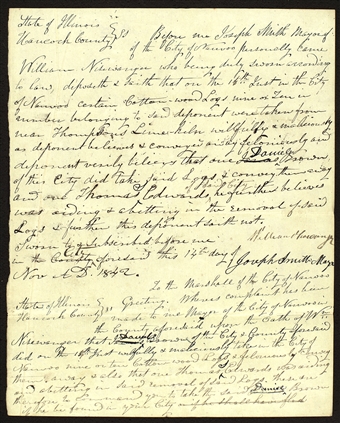 State of Illinois }
Hancock County } ss Before me Joseph Smith Mayor
of the City of Nauvoo personally came
William Niswanger who being duly sworn according
to law, deposeth & saith that on the 10th Inst in the City
of Nauvoo certain Cotton-wood Logs nine or Ten in
number belonging to said deponent were taken from
near Thompsons Lime-kiln wilfully & maliciously
as deponent believes & conveyed away feloniously and
deponent verily believes that one Daniel Brown
of this City did take said Logs & convey them away
and one Thomas Edwards, he further believes
was aiding & abetting in the removal of said
Logs & further this deponent saith not.
Sworn to & subscribed before me William Niswanger
in the County aforesaid this 14th day of
Nov A.D. 1842. Joseph Smith Mayor
To the Marshall of the City of Nauvoo
State of Illinois } Greeting. Whereas complaint has been
Hancock County } ss made to me Mayor of the City of Nauvoo in
the County aforesaid upon the oath of Wm
Niswanger that Daniel Brown of the City & County aforesaid
did on the 10th Inst wilfully & maliciously in the City of
Nauvoo nine or ten Cotton wood Logs & feloniously Convey
them away & also that one Thomas Edwards was aiding
and abetting in said removal of said Logs. These are
therefore to command you to take the said Daniel Brown
if he be found in your City